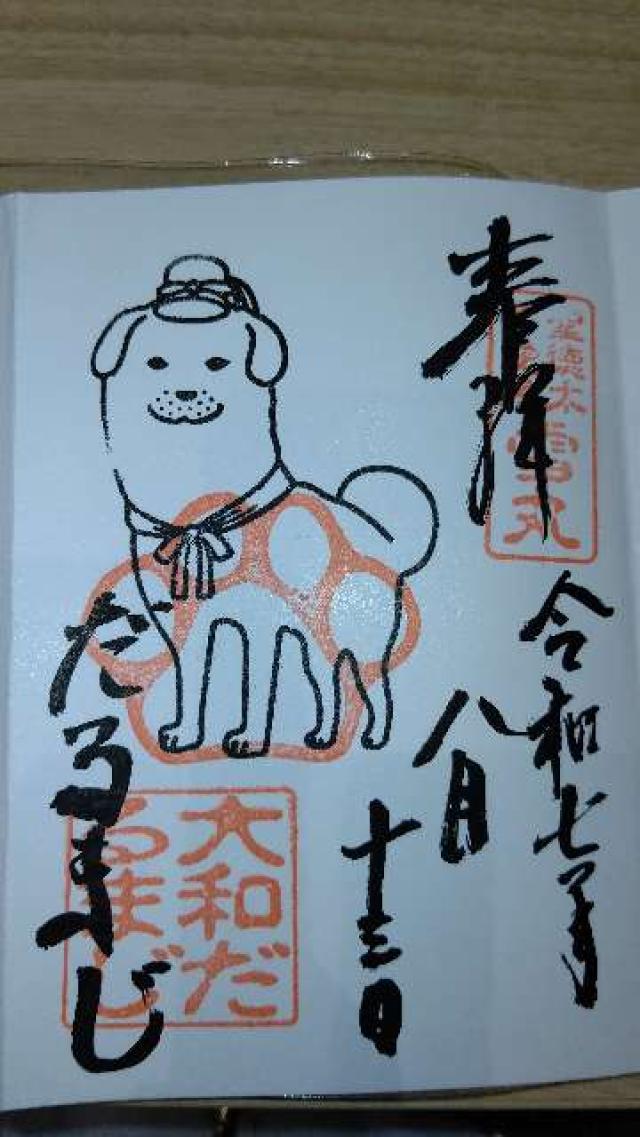 奉拝
聖徳太
雪丸
令和七年
八月
十三日
だるまじ
大和だ
るまじ